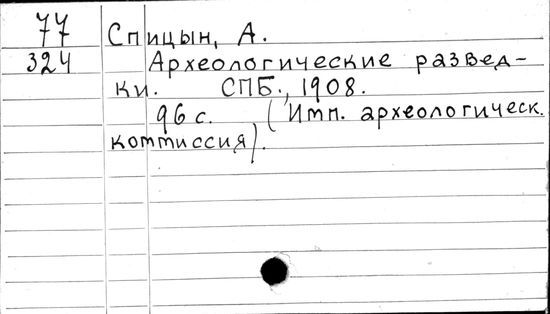 77 Спицын, А.
324 Археологические развед-
ки. СПБ., 1908.
96 с. (Имп. археологическ.
коммиссия).